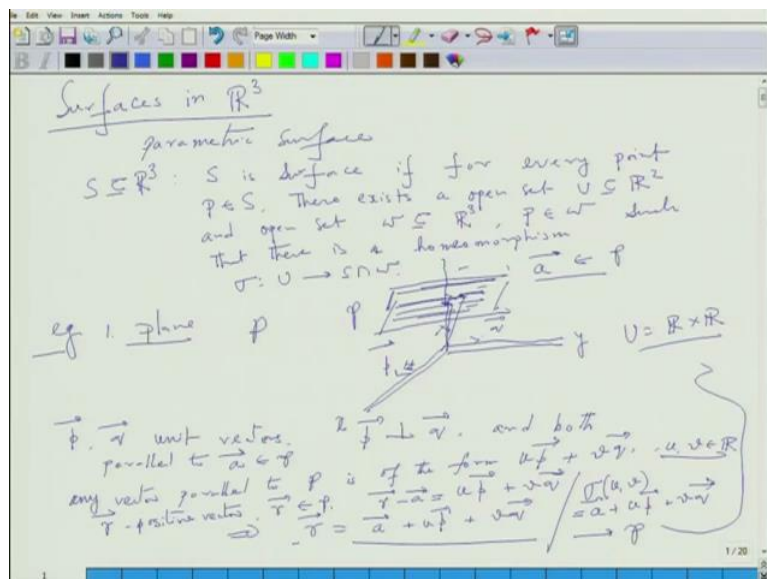 File Edit View Insert Actions Tools Help
Page Width
Surfaces in ℝ³
parametric surface
S ⊆ ℝ³ : S is surface if for every point
p ∈ S. There exists a open set U ⊆ ℝ²
and open set W ⊆ ℝ³, p ∈ W such
that there is a homeomorphism
σ : U → S ∩ W.
a⃗ ∈ P
eg 1. plane P
P
q⃗
p⃗
y
U = ℝ × ℝ
p⃗, q⃗ unit vectors. p⃗ ⊥ q⃗. and both
parallel to a⃗ ∈ P
any vector parallel to P is of the form up⃗ + vq⃗, u, v ∈ ℝ
r⃗ - positive vector. r⃗ ∈ P. r⃗ - a⃗ = up⃗ + vq⃗
⇒ r⃗ = a⃗ + up⃗ + vq⃗
σ(u, v)
= a⃗ + up⃗ + vq⃗
→ P
1 / 20
1